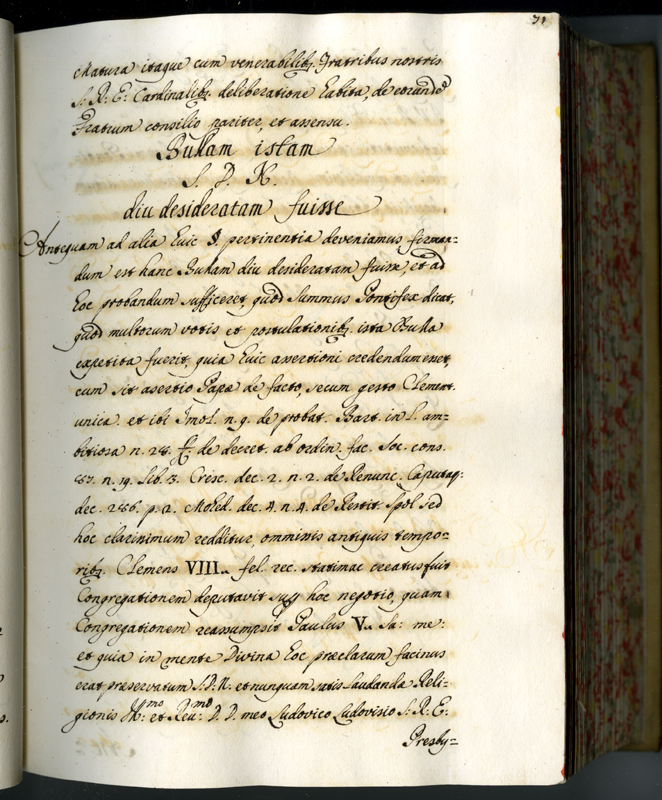 31
Matura itaque cum venerabilibꝫ Fratribus nostris
S. R. E. Cardinalibꝫ deliberatione habita, de eorundē
Fratrum consilio pariter, et assensu.
Bullam istam
S. D. N.
diu desideratam fuisse
Antequam ad alia huic §. pertinentia deveniamus, firman=
dum est hanc Bullam diu desideratam fuisse, et ad
hoc probandum sufficeret, quod Summus Pontifex dicat,
quod multorum votis et postulationibꝫ ista Bulla
expetita fuerit, quia huic assertioni credendum esset,
cum sit asertio Papæ de facto, secum gesto Clement.
unica. et ibi Imol. n. 9. de probat. Bart. in l. am=
bitiosa n. 28. ff. de decret. ab ordin. fac. Soc. cons.
87. n. 19. lib. 3. Cresc. dec. 2. n. 2. de Renunc. Caputaq:
dec. 286. p. 2. Mohed. dec. 4. n. 4. de Restit. Spol sed
hoc clarissimum redditur omminis antiquis tempo=
ribꝫ. Clemens VIII. fel. rec. statim ac creatus fuit
Congregationem deputavit sup hoc negotio, quam
Congregationem reassumpsit Paulus V. Sa: me:
et quia in mente Divina hoc præclarum facinus
erat præservatum S. D. N. et nunquam satis laudanda Reli=
gionis Ill:mo et Reu:mo D. D. meo Ludovico Ludovisio S. R. E.
Presby=